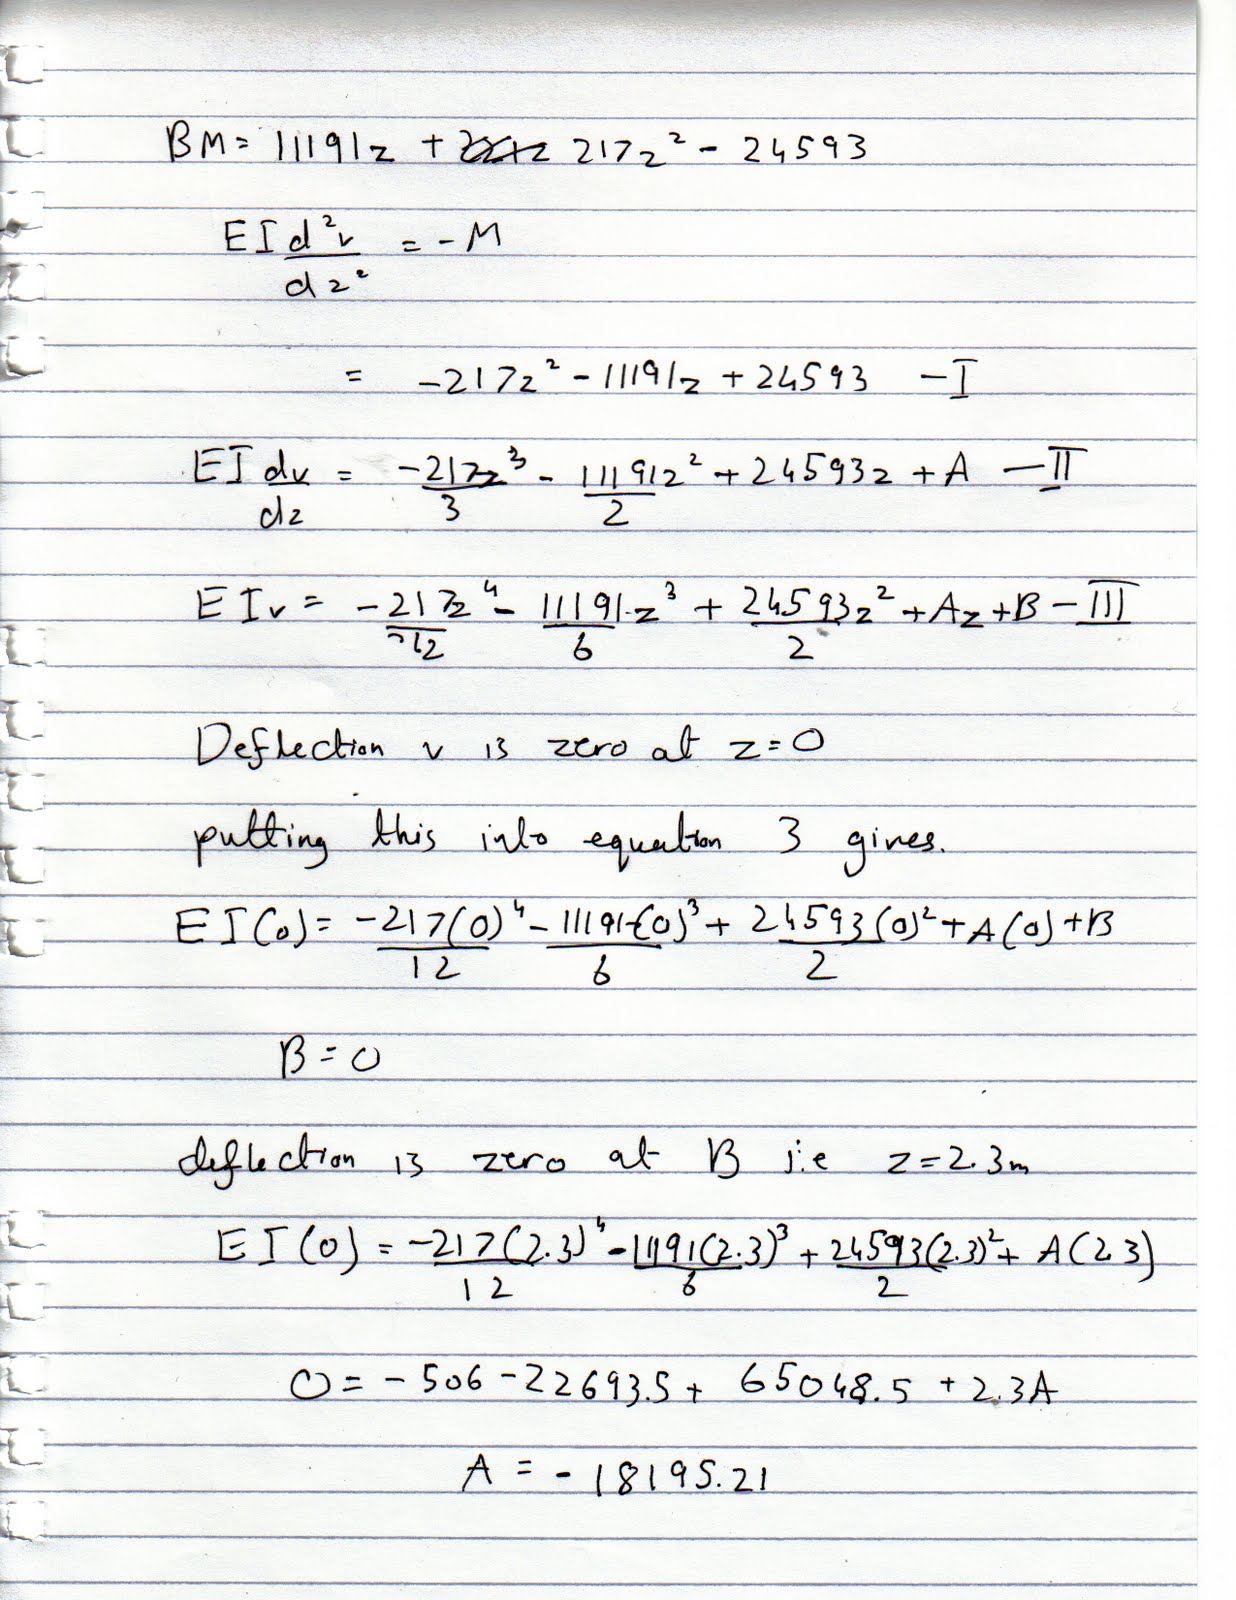 BM = 11191z + 217z² - 24593
EI d²v/dz² = -M
= -217z² - 11191z + 24593 - I
EI dv/dz = -217z³/3 - 11191z²/2 + 24593z + A - II
EIv = -217z⁴/12 - 11191z³/6 + 24593z²/2 + Az + B - III
Deflection v is zero at z=0
putting this into equation 3 gives.
EI(0) = -217(0)⁴/12 - 11191(0)³/6 + 24593(0)²/2 + A(0) + B
B = 0
deflection is zero at B i.e z = 2.3m
EI(0) = -217(2.3)⁴/12 - 11191(2.3)³/6 + 24593(2.3)²/2 + A(2.3)
0 = -506 - 22693.5 + 65048.5 + 2.3A
A = -18195.21